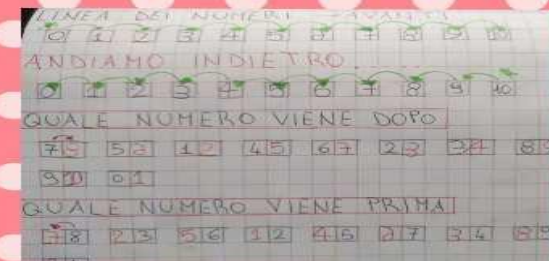 LINEA DEI NUMERI AVANTI
0 1 2 3 4 5 6 7 8 9 10
ANDIAMO INDIETRO.....
0 1 2 3 4 5 6 7 8 9 10
QUALE NUMERO VIENE DOPO
7 8 5 6 1 2 4 5 6 7 2 3 3 4 8 9
9 10 0 1
QUALE NUMERO VIENE PRIMA
7 8 2 3 5 6 1 2 4 5 6 7 3 4 8 9